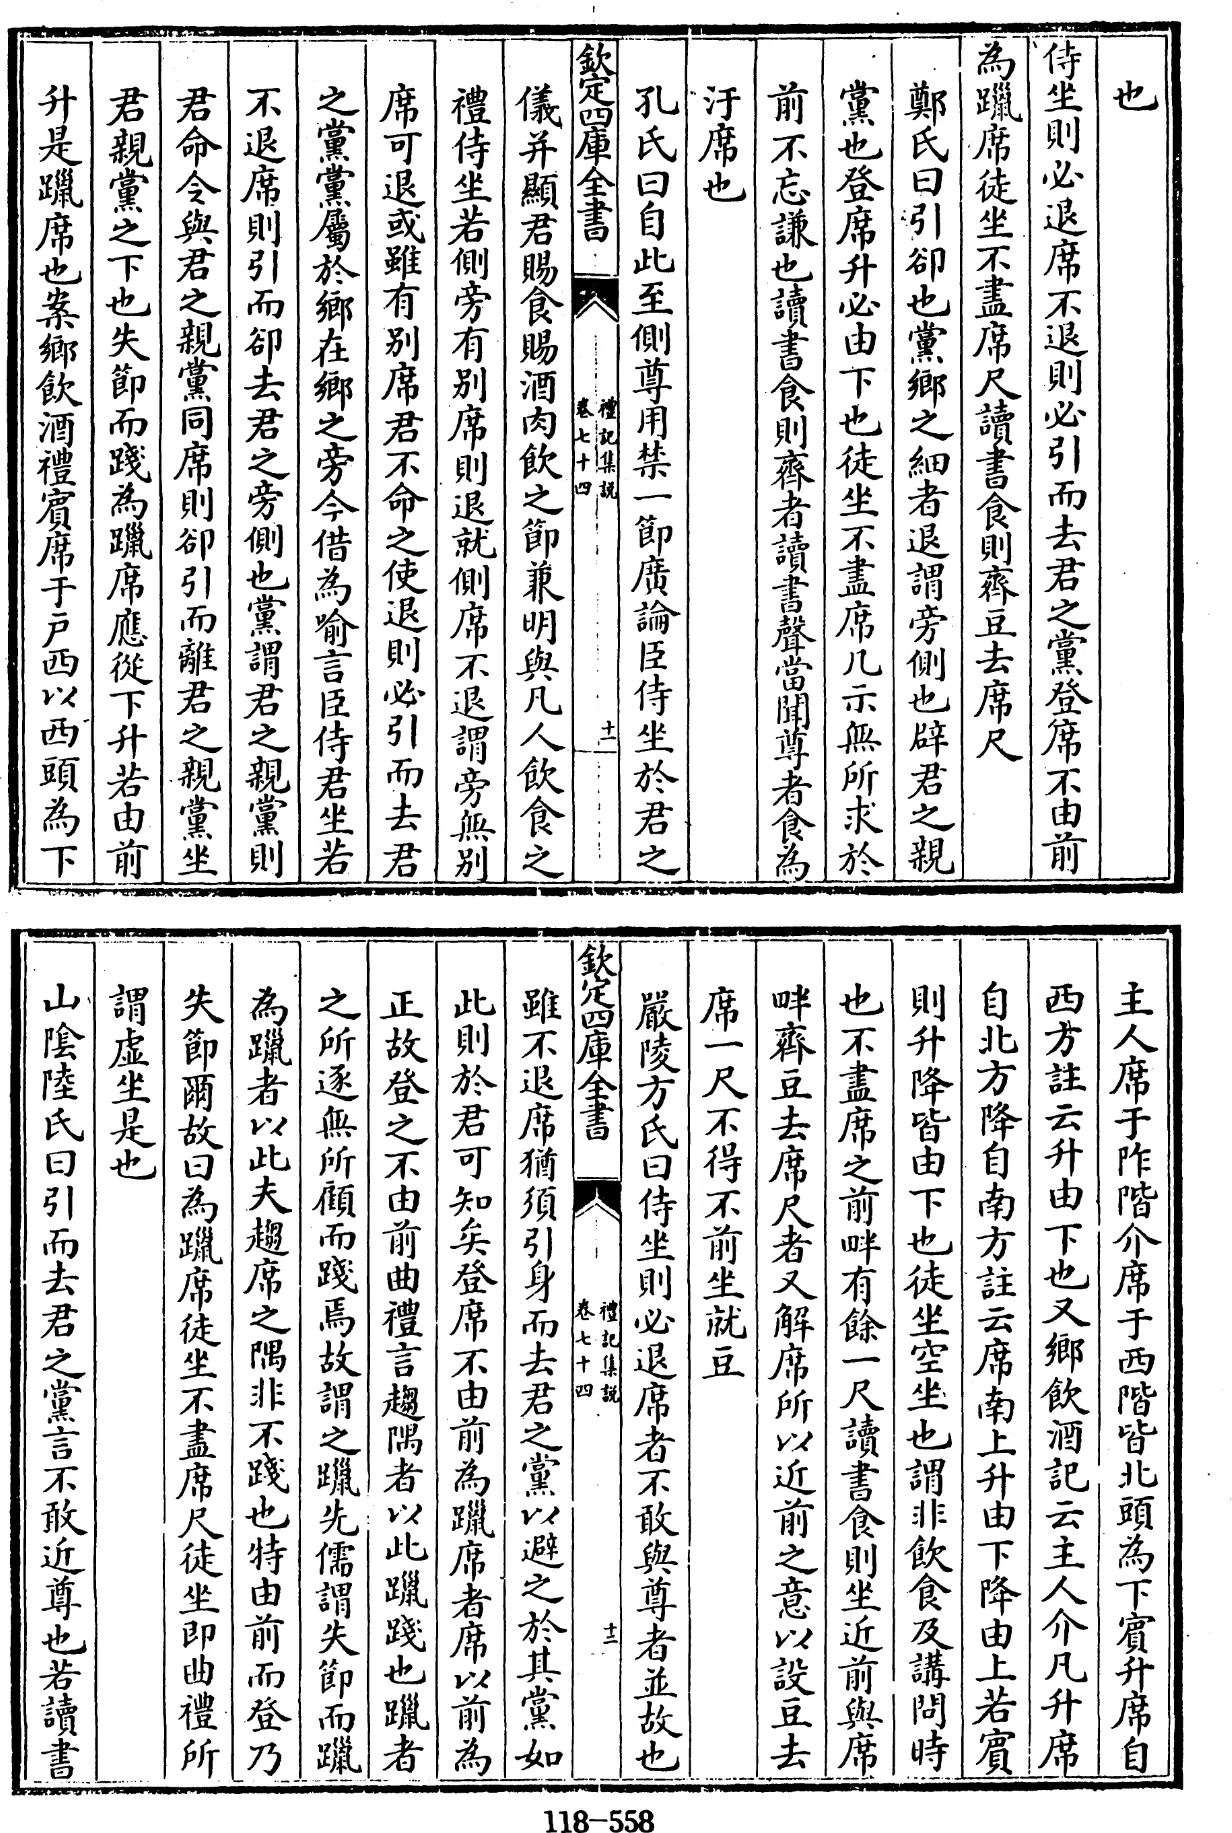 也
侍坐則必退席不退則必引而去君之黨登席不由前
為躐席徒坐不盡席尺讀書食則齊豆去席尺
鄭氏曰引卻也黨鄉之細者退謂旁側也辟君之親
黨也登席升必由下也徒坐不盡席凡示無所求於
前不忘謙也讀書食則齊者讀書聲當聞尊者食為
汙席也
孔氏曰自此至側尊用禁一節廣論臣侍坐於君之
欽定四庫全書
禮記集說
卷七十四
十一
儀并顯君賜食賜酒肉飲之節兼明與凡人飲食之
禮侍坐若側旁有别席則退就側席不退謂旁無别
席可退或雖有别席君不命之使退則必引而去君
之黨黨屬於鄉在鄉之旁今借為喻言臣侍君坐若
不退席則引而卻去君之旁側也黨謂君之親黨則
君命令與君之親黨同席則卻引而離君之親黨坐
君親黨之下也失節而踐為躐席應從下升若由前
升是躐席也案鄉飲酒禮賓席于戶西以西頭為下
主人席于阼階介席于西階皆北頭為下賓升席自
西方註云升由下也又鄉飲酒記云主人介凡升席
自北方降自南方註云席南上升由下降由上若賓
則升降皆由下也徒坐空坐也謂非飲食及講問時
也不盡席之前畔有餘一尺讀書食則坐近前與席
畔齊豆去席尺者又解席所以近前之意以設豆去
席一尺不得不前坐就豆
嚴陵方氏曰侍坐則必退席者不敢與尊者並故也
欽定四庫全書
禮記集說
卷七十四
十二
雖不退席猶須引身而去君之黨以避之於其黨如
此則於君可知矣登席不由前為躐席者席以前為
正故登之不由前曲禮言趨隅者以此躐踐也躐者
之所逐無所顧而踐焉故謂之躐先儒謂失節而躐
為躐者以此夫趨席之隅非不踐也特由前而登乃
失節爾故曰為躐席徒坐不盡席尺徒坐即曲禮所
謂虛坐是也
山陰陸氏曰引而去君之黨言不敢近尊也若讀書
118-558